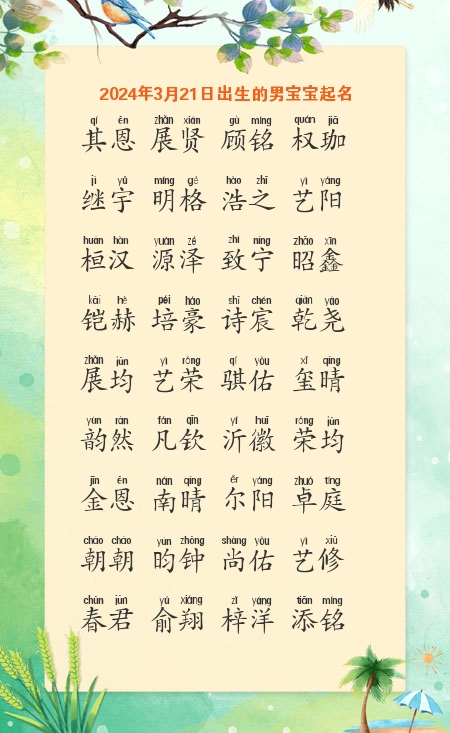 2024年3月21日出生的男宝宝起名
qí ēn zhǎn xián gù míng quán jiā
其恩 展贤 顾铭 权珈
jì yǔ míng gé hào zhī yì yáng
继宇 明格 浩之 艺阳
huán hàn yuán zé zhì níng zhāo xīn
桓汉 源泽 致宁 昭鑫
kǎi hè péi háo shī chén qián yáo
铠赫 培豪 诗宸 乾尧
zhǎn jūn yì róng qí yòu xǐ qíng
展均 艺荣 骐佑 玺晴
yùn rán fán qīn yí huī róng jūn
韵然 凡钦 沂徽 荣均
jīn ēn nán qíng ěr yáng zhuó tíng
金恩 南晴 尔阳 卓庭
cháo cháo yún zhōng shàng yòu yì xiū
朝朝 昀钟 尚佑 艺修
chūn jūn yú xiáng zǐ yáng tiān míng
春君 俞翔 梓洋 添铭